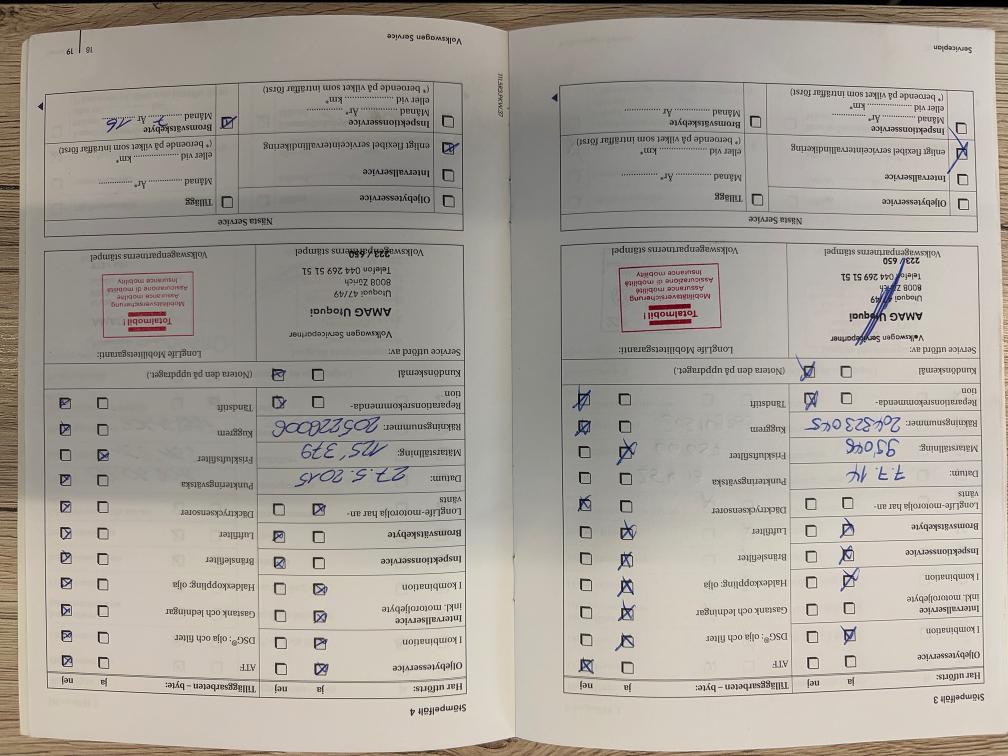 Stämpelfält 3
Har utförts: ja nej
Oljebytesservice
I kombination
Intervallservice
inkl. motoroljebyte
I kombination
Inspektionsservice
Bromsvätskebyte
LongLife-motorolja har an-
vänts
Datum: 7.7.14
Mätarställning: 95046
Räkningsnummer: 204823045
Reparationsrekommenda-
tion
Kundönskemål (Notera den på uppdraget.)
Tilläggsarbeten – byte: ja nej
ATF
DSG®: olja och filter
Gastank och ledningar
Haldexkoppling: olja
Bränslefilter
Luftfilter
Däcktrycksensorer
Punkteringsvätska
Friskluftsfilter
Kuggrem
Tändstift
Service utförd av:
Volkswagen Servicepartner
AMAG Utoquai
Utoquai 47/49
8008 Zürich
Telefon 044 269 51 51
223 / 650
Volkswagenpartnerns stämpel
LongLife Mobilitetsgaranti:
Totalmobil!
Mobilitätsversicherung
Assurance mobilité
Assicurazione di mobilità
Insurance mobility
Volkswagenpartnerns stämpel
Nästa Service
Oljebytesservice
Intervallservice
enligt flexibel serviceintervallindikering
Inspektionsservice
Månad .......... År* ..........
eller vid .......... km*
(* beroende på vilket som inträffar först)
Tillägg
Månad .......... År* ..........
eller vid .......... km*
(* beroende på vilket som inträffar först)
Bromsvätskebyte
Månad .......... År ..........
Serviceplan
Stämpelfält 4
Har utförts: ja nej
Oljebytesservice
I kombination
Intervallservice
inkl. motoroljebyte
I kombination
Inspektionsservice
Bromsvätskebyte
LongLife-motorolja har an-
vänts
Datum: 27.5.2015
Mätarställning: 125'379
Räkningsnummer: 205228006
Reparationsrekommenda-
tion
Kundönskemål (Notera den på uppdraget.)
Tilläggsarbeten – byte: ja nej
ATF
DSG®: olja och filter
Gastank och ledningar
Haldexkoppling: olja
Bränslefilter
Luftfilter
Däcktrycksensorer
Punkteringsvätska
Friskluftsfilter
Kuggrem
Tändstift
Service utförd av:
Volkswagen Servicepartner
AMAG Utoquai
Utoquai 47/49
8008 Zürich
Telefon 044 269 51 51
223 / 650
Volkswagenpartnerns stämpel
LongLife Mobilitetsgaranti:
Totalmobil!
Mobilitätsversicherung
Assurance mobilité
Assicurazione di mobilità
Insurance mobility
Volkswagenpartnerns stämpel
Nästa Service
Oljebytesservice
Intervallservice
enligt flexibel serviceintervallindikering
Inspektionsservice
Månad .......... År* ..........
eller vid .......... km*
(* beroende på vilket som inträffar först)
Tillägg
Månad .......... År* ..........
eller vid .......... km*
(* beroende på vilket som inträffar först)
Bromsvätskebyte
Månad 7 År 16
Volkswagen Service
18 | 19